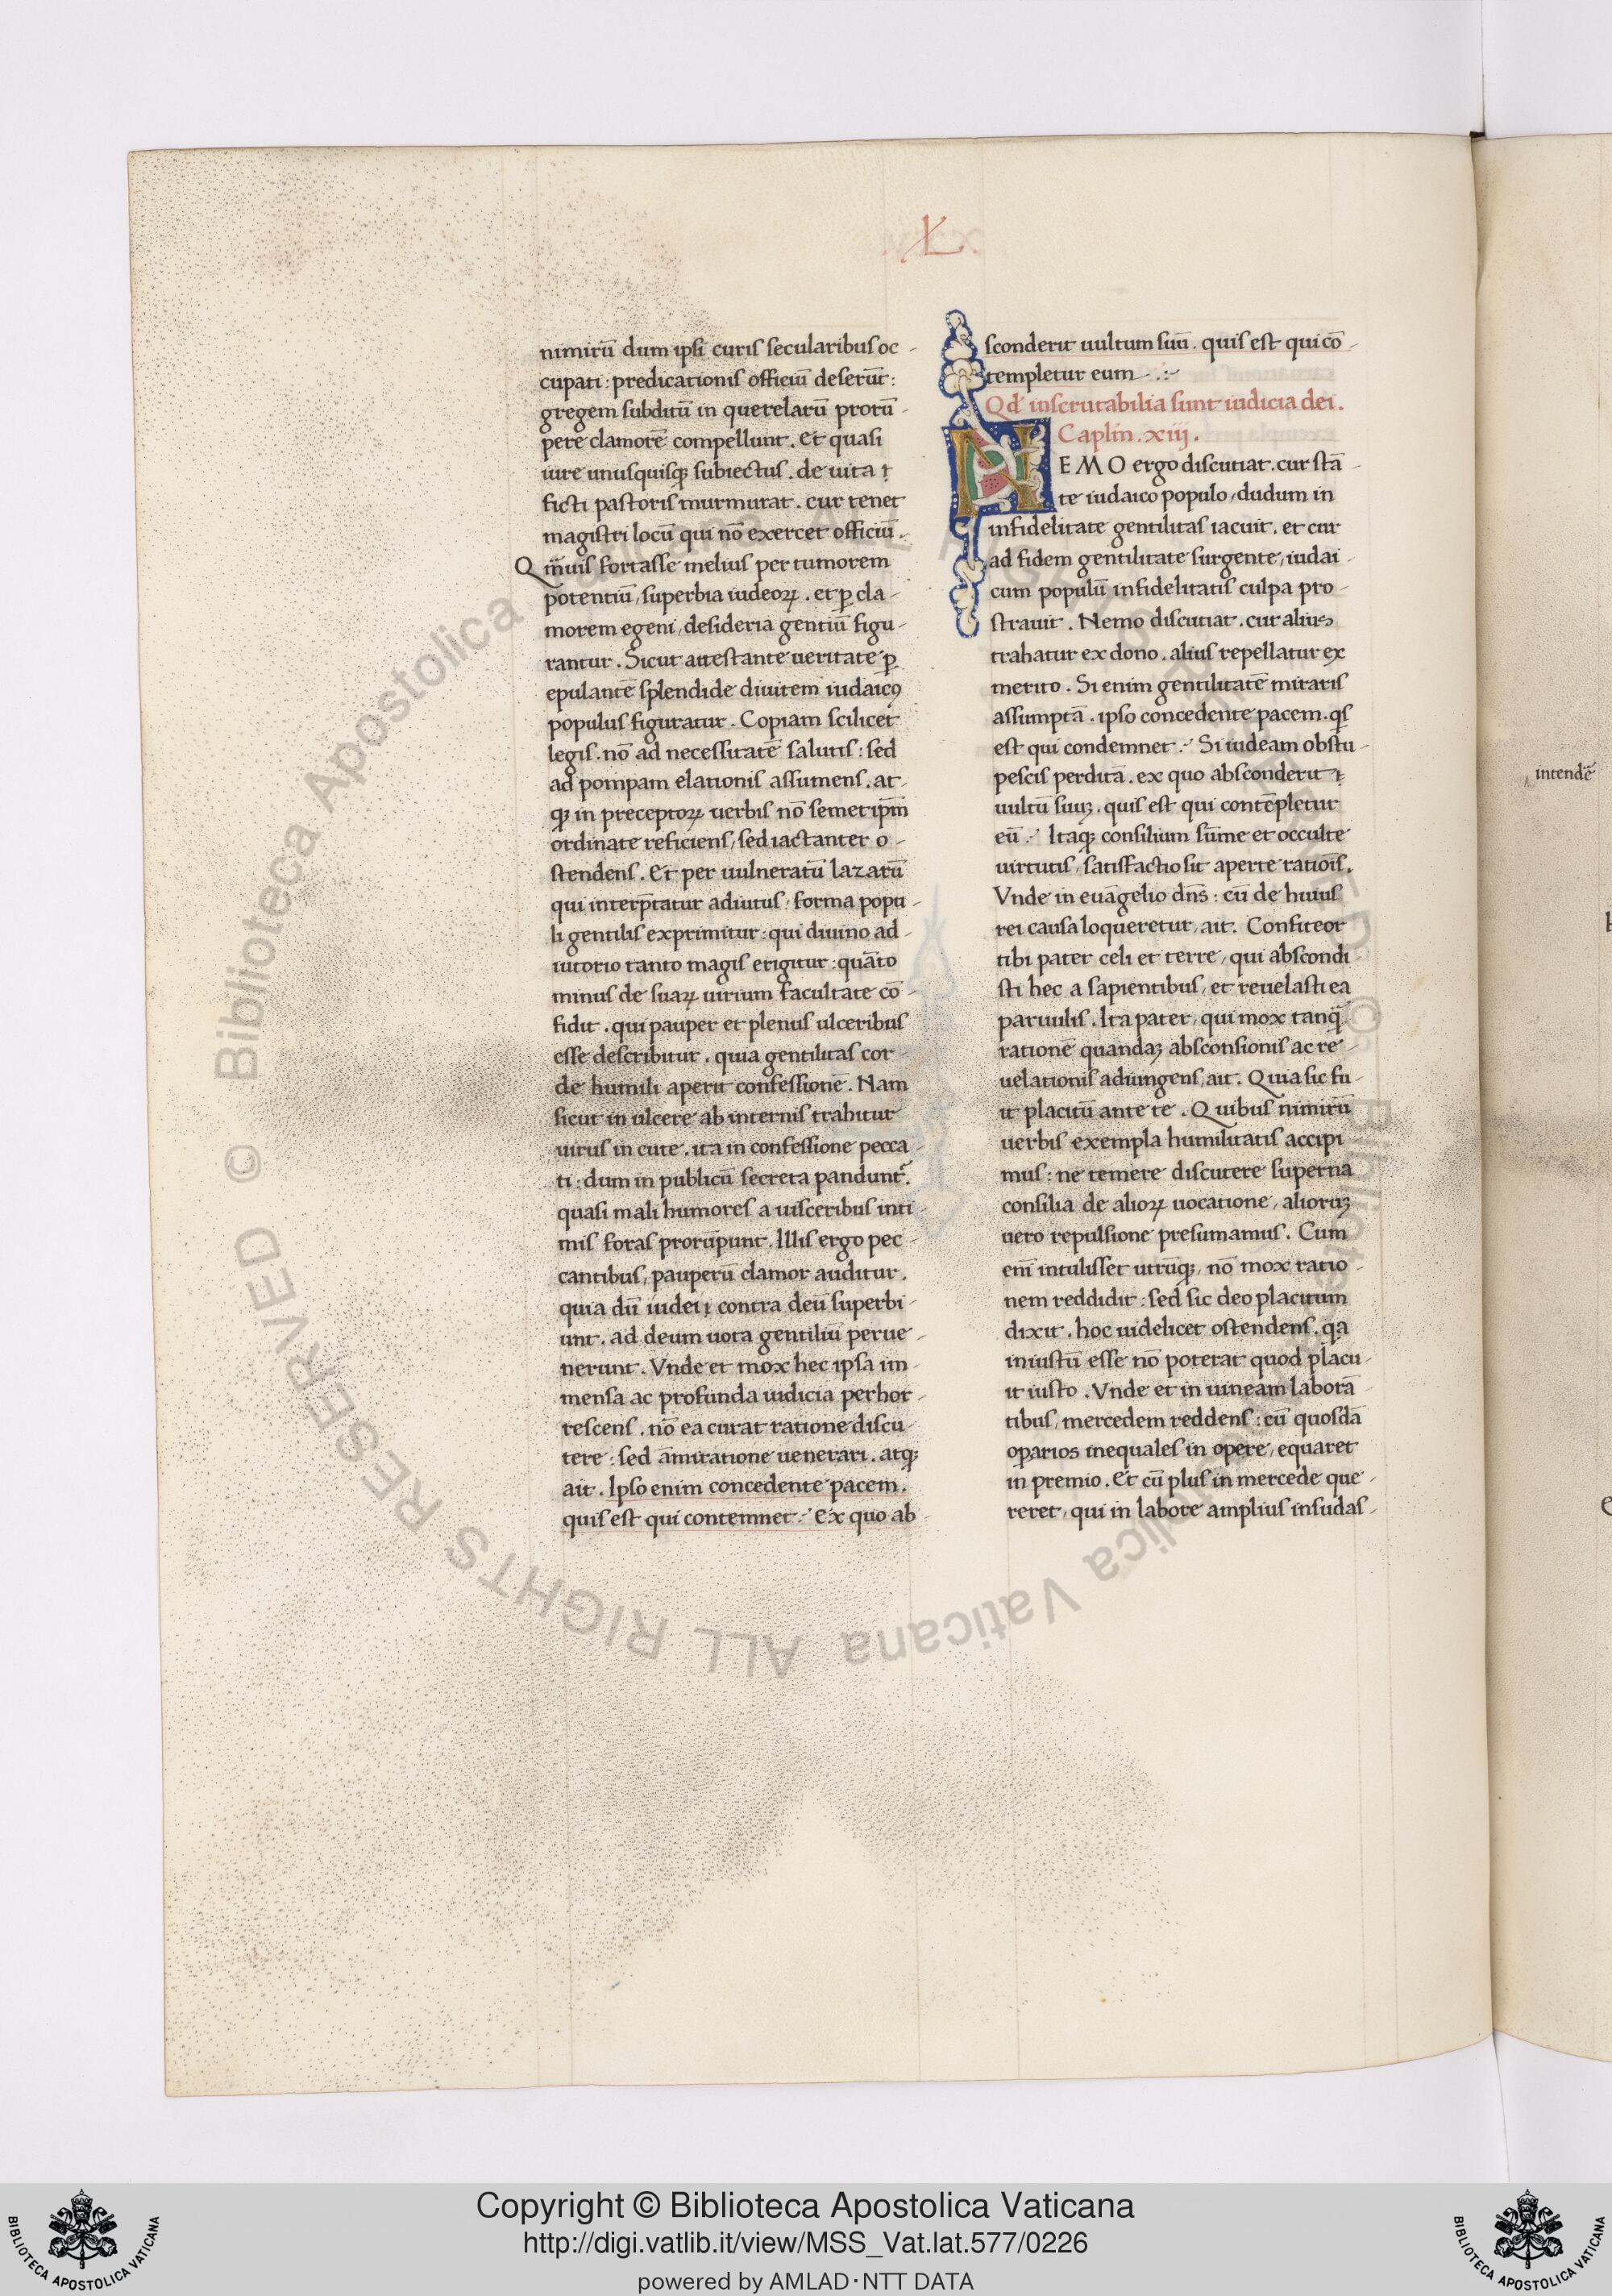 X
nimirū dum ipsi curis secularibus oc-
cupati: predicationis officiū deserūt:
gregem subditū in querelarū prorū-
pere clamorē compellunt. Et quasi
iure unusquisqꝫ subiectus. de uita ⁊
ficti pastoris murmurat. cur tenet
magistri locū qui nō exercet officiū.
Qm̄uis fortasse melius per tumorem
potentiū, superbia iudeoꝝ. et ꝑ cla-
morem egeni, desideria gentiū figu-
rantur. Sicut attestante ueritate ꝑ
epulantē splendide diuitem iudaicꝰ
populus figuratur. Copiam scilicet
legis. nō ad necessitatē salutis: sed
ad pompam elationis assumens. at-
qꝫ in preceptoꝝ uerbis nō semetip̄m
ordinate reficiens, sed iactanter o-
stendens. Et per uulneratū lazarū
qui interp̄tatur adiutus, forma popu-
li gentilis exprimitur: qui diuino ad-
iutorio tanto magis erigitur: quāto
minus de suaꝝ uirium facultate cō-
fidit. qui pauper et plenus ulceribus
esse describitur. quia gentilitas cor-
de humili aperit confessionē. Nam
sicut in ulcere ab internis trahitur
uirus in cute. ita in confessione pecca-
ti: dum in publicū secreta pandunt᷑.
quasi mali humores a uisceribus inti-
mis foras prorūpunt. Illis ergo pec-
cantibus, pauperū clamor auditur.
quia dū iudei contra deū superbi-
unt. ad deum uota gentiliū perue-
nerunt. Vnde et mox hec ipsa im-
mensa ac profunda iudicia perhor-
rescens. nō ea curat ratione discu-
tere: sed āmiratione uenerari. atqꝫ
ait. Ipso enim concedente pacem.
quis est qui contemnet: Ex quo ab-
sconderit uultum suū. quis est qui cō-
templetur eum.:-
Qd̄ inscrutabilia sunt iudicia dei.
Caplm̄. xiij.
NEMO ergo discutiat. cur stā-
te iudaico populo, dudum in
infidelitate gentilitas iacuit. et cur
ad fidem gentilitate surgente, iudai-
cum populū infidelitatis culpa pro-
strauit. Nemo discutiat. cur alius
trahatur ex dono. alius repellatur ex
merito. Si enim gentilitatē miraris
assumptā. ipso concedente pacem. qͥs
est qui condemnet: Si iudeam obstu-
pescis perditā. ex quo absconderit
uultū suuꝫ. quis est qui contēpletur
eū: Itaqꝫ consilium sūme et occulte
uirtutis, satisfactio sit aperte ratiōis.
Vnde in euāgelio dn̄s: cū de huius
rei causa loqueretur, ait. Confiteor
tibi pater celi et terre, qui abscondi-
sti hec a sapientibus, et reuelasti ea
paruulis. Ita pater, qui mox tanq̄
ratione quandaꝫ absconsionis ac re-
uelationis adiungens, ait. Quia sic fu-
it placitū ante te. Quibus nimirū
uerbis exempla humilitatis accipi-
mus: ne temere discutere superna
consilia de alioꝝ uocatione, alioruꝫ
uero repulsione presumamus. Cum
enī intulisset utrūqꝫ, nō mox ratio-
nem reddidit: sed sic deo placitum
dixit. hoc uidelicet ostendens. qa
iniustū esse nō poterat quod placu-
it iusto. Vnde et in uineam laborā-
tibus, mercedem reddens: cū quosdā
oꝑarios inequales in opere, equaret
in premio. Et cū plus in mercede que-
reret, qui in labore amplius insudas-
intendē
© Biblioteca Apostolica Vaticana ALL RIGHTS RESERVED
Copyright © Biblioteca Apostolica Vaticana
http://digi.vatlib.it/view/MSS_Vat.lat.577/0226
powered by AMLAD·NTT DATA
BIBLIOTECA APOSTOLICA VATICANA
BIBLIOTECA APOSTOLICA VATICANA